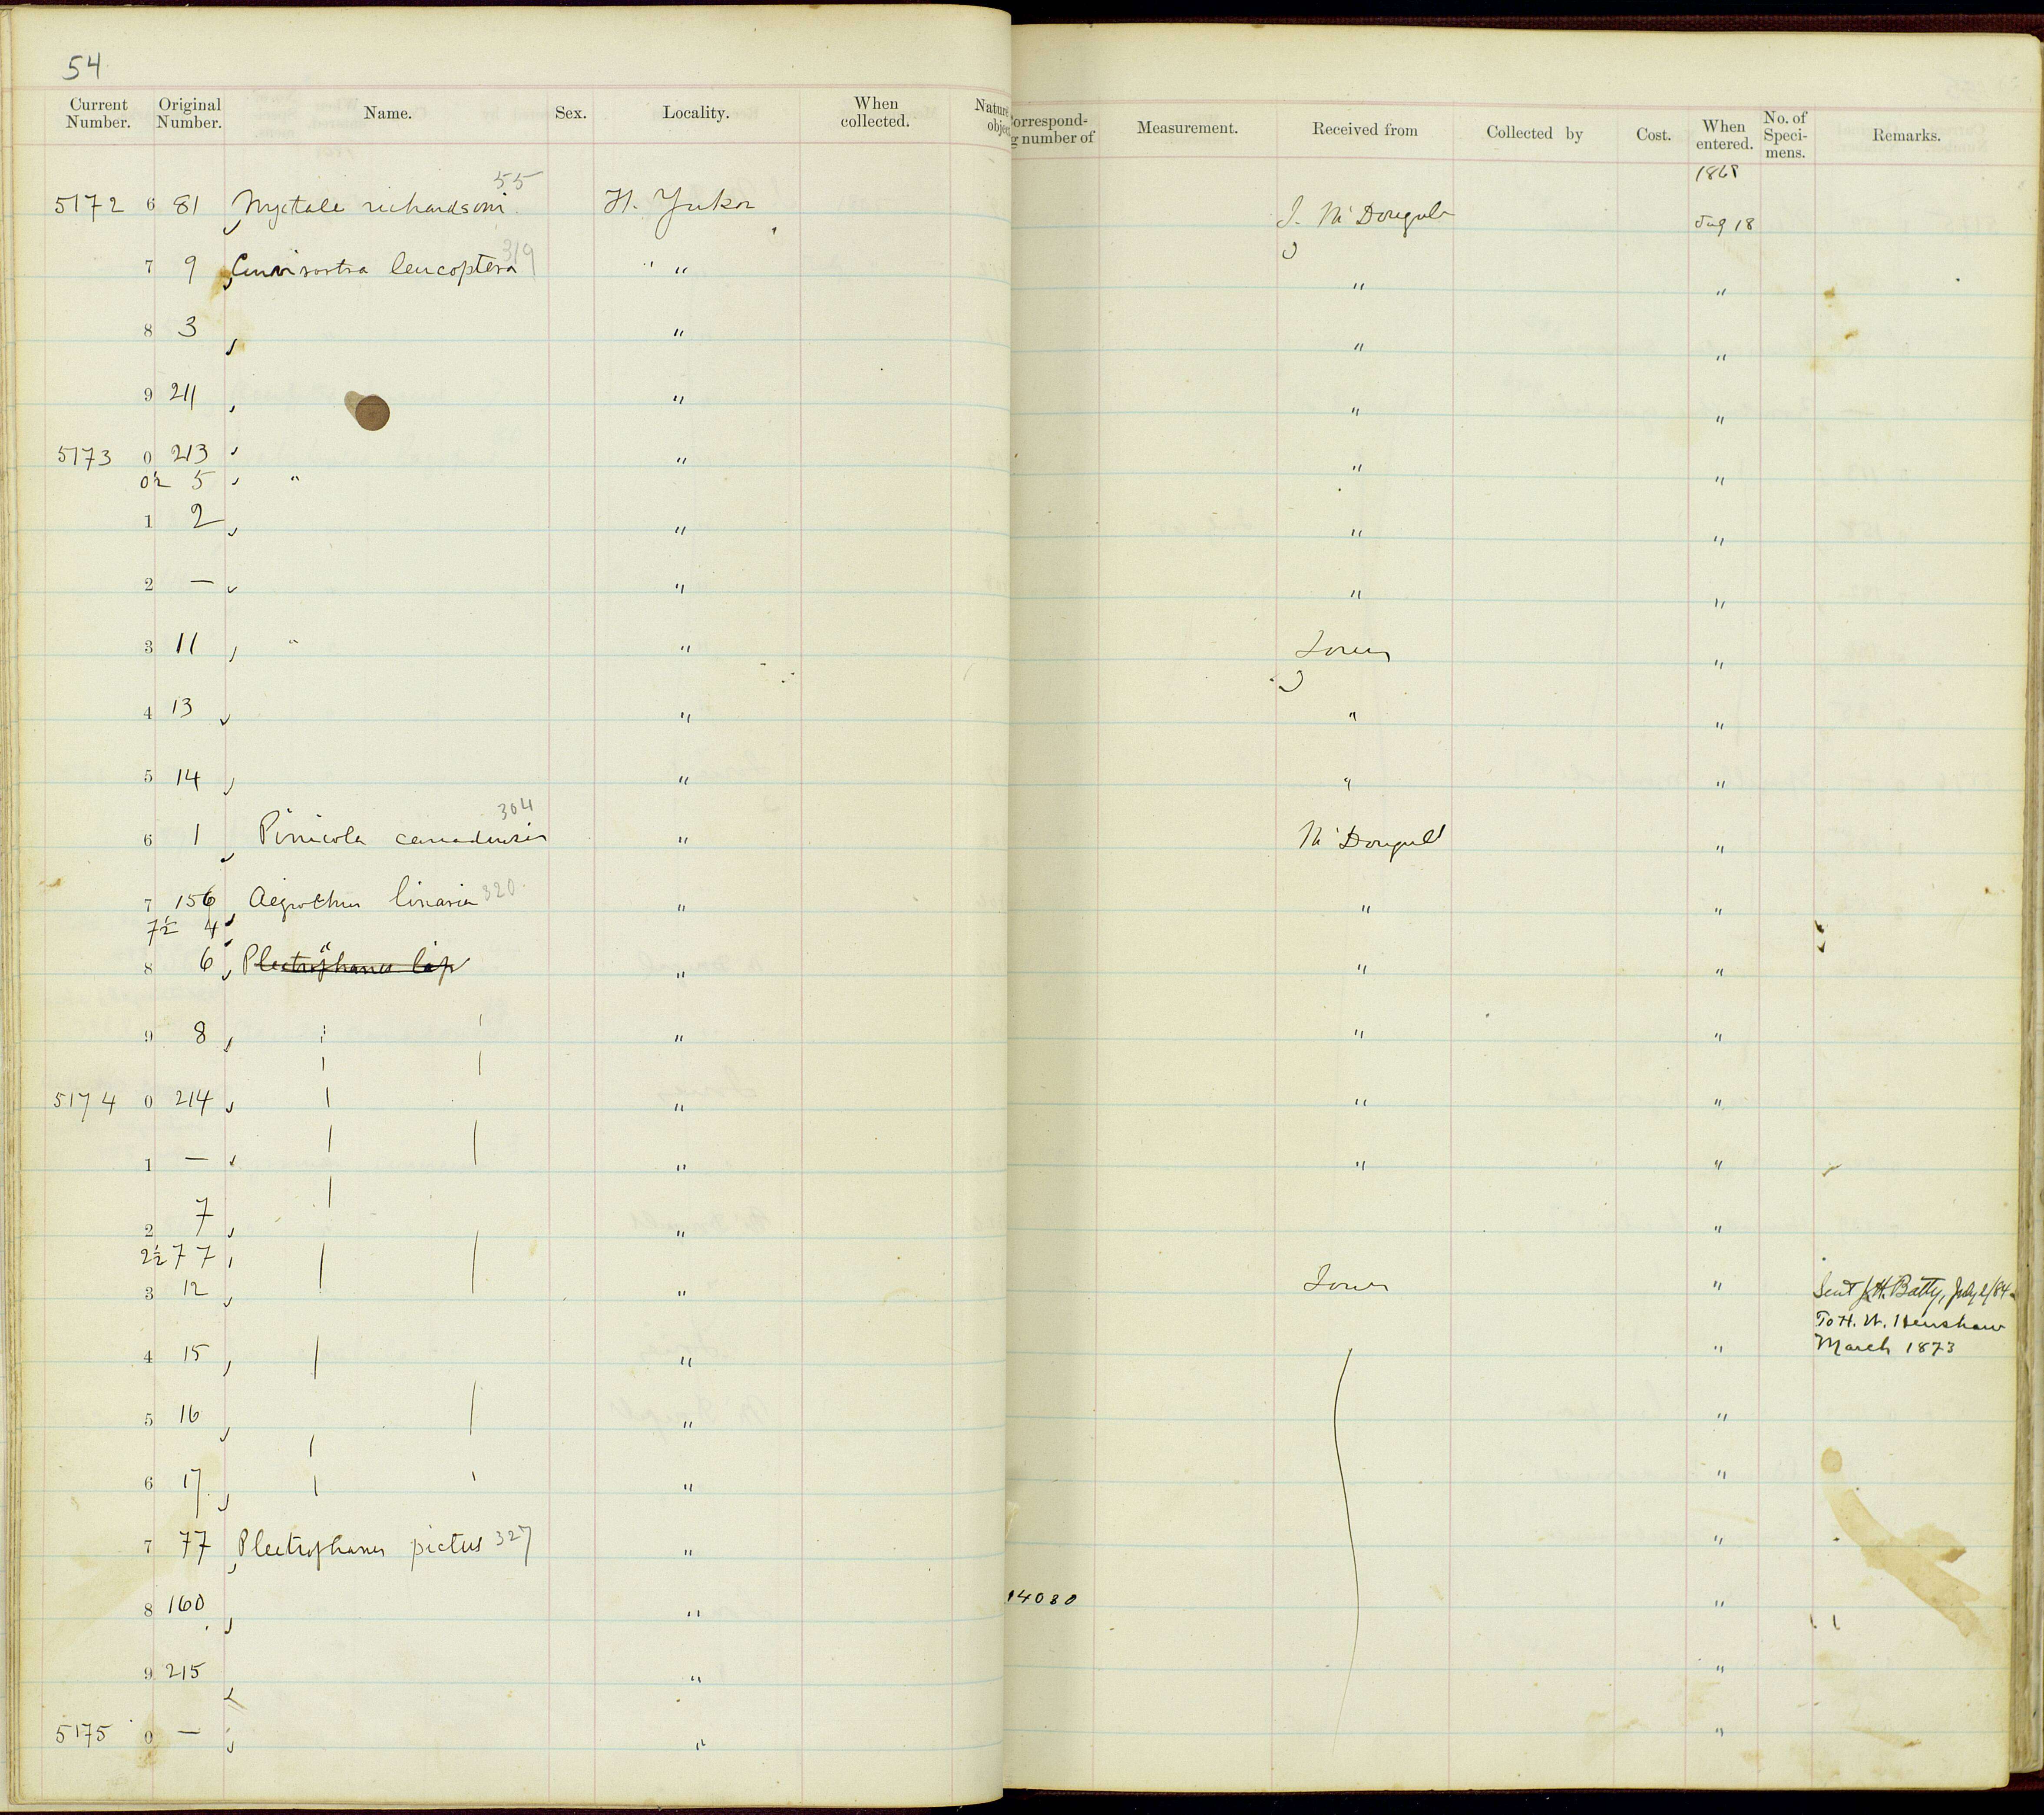 54
Current Number. Original Number. Name. Sex. Locality. When collected. Nature object Correspond- g number of Measurement. Received from Collected by Cost. When entered. No. of Speci- mens. Remarks.
55 1868
5172 6 81 Nyctale richardsoni. H. Yukon J. McDougall Aug 18
319
7 9 Curvirostra leucoptera " " " "
8 3 " " "
9 211 " " "
5173 0 213 " " "
0½ 5 " "
1 2 " " "
2 — " " "
3 11 " " "
4 13 " " "
5 14 " " "
304
6 1 Pinicola canadensis " McDougall "
7 156 Aegiothus linaria 320 " " "
7½ 4 "
8 6 Plectrophanes lap " " "
9 8 " " "
5174 0 214 " " "
1 — " " "
2 7 " "
2½ 77
3 12 " " Sent J.H. Batty, July 2/84
To H. W. Henshaw
4 15 " " March 1873
5 16 " "
6 17 " "
7 77 Plectrophanes pictus 327 " "
8 160 " 14080 "
9 215 " "
5175 0 — " "